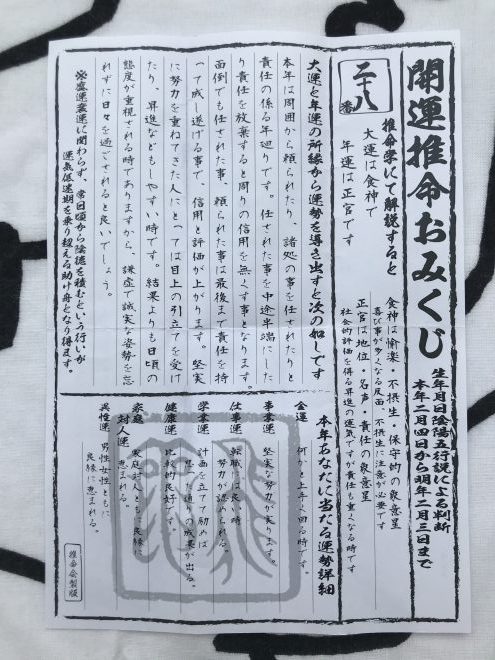 開運推命おみくじ
生年月日陰陽五行説による判断
本年二月四日から明年二月三日まで
二十八番
推命学にて解説すると
大運は食神で
年運は正官です
食神は愉楽・不摂生・保守的の象意星
喜び事が多くなる反面、不摂生に注意が必要です
正官は地位・名声・責任の象意星
社会的評価を得る昇進の運気ですが責任も重くなる時です
大運と年運の所縁から運勢を導き出すと次の如しです
本年は周囲から頼られたり、諸処の事を任されたりと
責任の係る年廻りです。任された事を中途半端にした
り責任を放棄すると周りの信用を無くす事となります。
面倒でも任された事、頼られた事は最後まで責任を持
って成し遂げる事で、信用と評価が上がります。堅実
に努力を重ねてきた人にとっては目上の引立てを受け
たり、昇進などもしやすい時です。結果よりも日頃の
態度が重視される時でありますから、謙虚で誠実な姿勢を忘
れずに日々を過ごされると良いでしょう。
※盛運衰運に関わらず、常日頃から陰徳を積むという行いが
運気低迷期を乗り越える助け舟となり得ます。
本年あなたに当たる運勢詳細
金運 何かと上手く回る時です。
事業運 堅実な努力が実ります。
仕事運 転職には良い時
努力が認められる。
学業運 計画を立てて励めば
思い通りの成果が出る。
健康運 比較的良好です。
家庭
対人運 家庭対人ともに良縁に
恵まれる。
異性運 男性女性ともに
良縁に恵まれる。
推命会製版